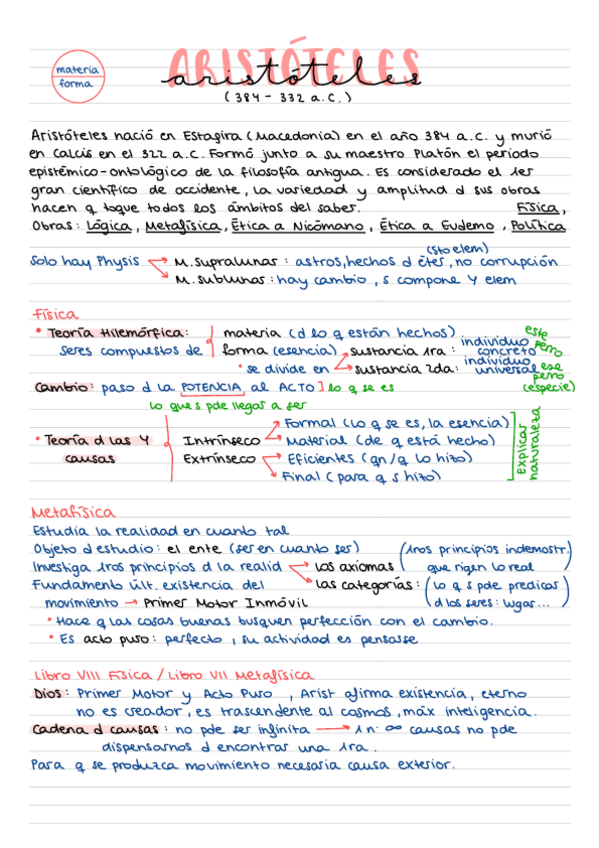 materia
forma
ARISTÓTELES
aristóteles
(384 - 332 a.C.)
Aristóteles nació en Estagira (Macedonia) en el año 384 a.C. y murió
en Calcis en el 322 a.C. Formó junto a su maestro Platón el período
epistémico-ontológico de la filosofía antigua. Es considerado el 1er
gran científico de occidente, la variedad y amplitud d sus obras
hacen q toque todos los ámbitos del saber. Física,
Obras: Lógica, Metafísica, Ética a Nicómano, Ética a Eudemo, Política
(5to elem)
Solo hay Physis → M. supralunar: astros, hechos d éter, no corrupción
→ M. sublunar: hay cambio, s compone 4 elem
Física
• Teoría Hilemórfica: materia (d lo q están hechos)
seres compuestos de forma (esencia) → sustancia 1ra: individuo concreto este perro
• se divide en → sustancia 2da: individuo universal ese perro (especie)
Cambio: paso d la POTENCIA al ACTO] lo q se es
lo que s pde llegar a ser
• Teoría d las 4 causas
Intrínseco → Formal (lo q se es, la esencia)
→ Material (de q está hecho)
Extrínseco → Eficientes (qn/q lo hizo)
→ Final (para q s hizo)
Explicar naturaleza
Metafísica
Estudia la realidad en cuanto tal
Objeto d estudio: el ente (ser en cuanto ser)
Investiga 1ros principios d la realid → los axiomas (1ros principios indemostr. que rigen lo real)
→ las categorías: (lo q s pde predicar d los seres: lugar...)
Fundamento últ. existencia del
movimiento → Primer Motor Inmóvil
• Hace q las cosas buenas busquen perfección con el cambio.
• Es acto puro: perfecto, su actividad es pensarse
Libro VIII Física / Libro VII Metafísica
Dios: Primer Motor y Acto Puro, Arist afirma existencia, eterno
no es creador, es trascendente al cosmos, máx inteligencia.
Cadena d causas: no pde ser infinita → 1 n: ∞ causas no pde
dispensarnos d encontrar una 1ra.
Para q se produzca movimiento necesaria causa exterior.